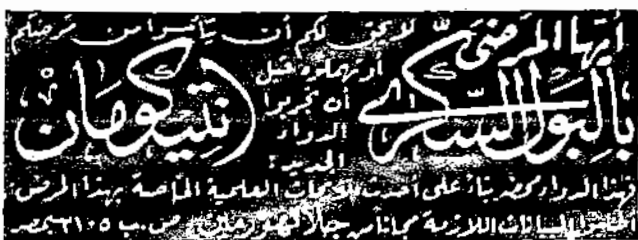 أيها المرضى
بالبول السكرى
لا يحق لكم أن تيأسوا من مرضكم
أو تهملوه قبل
أن تجربوا
الدواء
الجديد:
(أنتيكومان
فهذا الدواء محضر بناء على أحدث العلمية الخاصة بهذا المرض:
البيانات اللازمة مجانا من ص.ب ٢١٠٥ بمصر